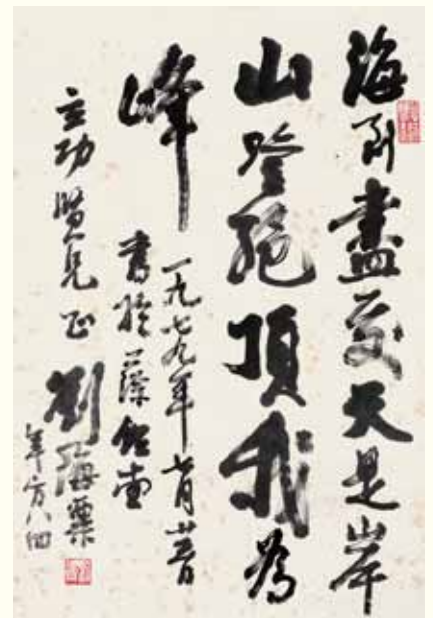 海到盡處天是岸
山登絕頂我為
峰
一九七九年七月廿日
書於藻鑑堂
立功賢兄正
劉海粟
年方八四